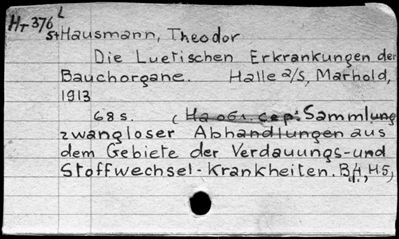 HT 376 L
St Hausmann, Theodor
Die Luetischen Erkrankungen der
Bauchorgane. Halle a/S, Marhold,
1913
68 s. (На обл. сер: Sammlung
zwangloser Abhandlungen aus
dem Gebiete der Verdauungs-und
Stoffwechsel-Krankheiten. B.4, H5,